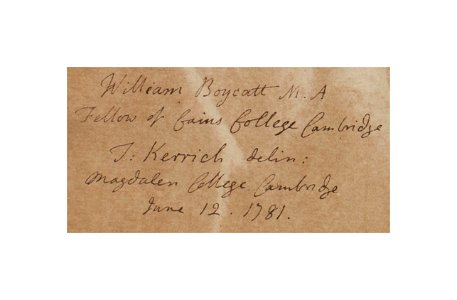 William Boycatt M. A
Fellow of Caius College Cambridge
T: Kerrich delin:
Magdalen College Cambridge
June 12. 1781.